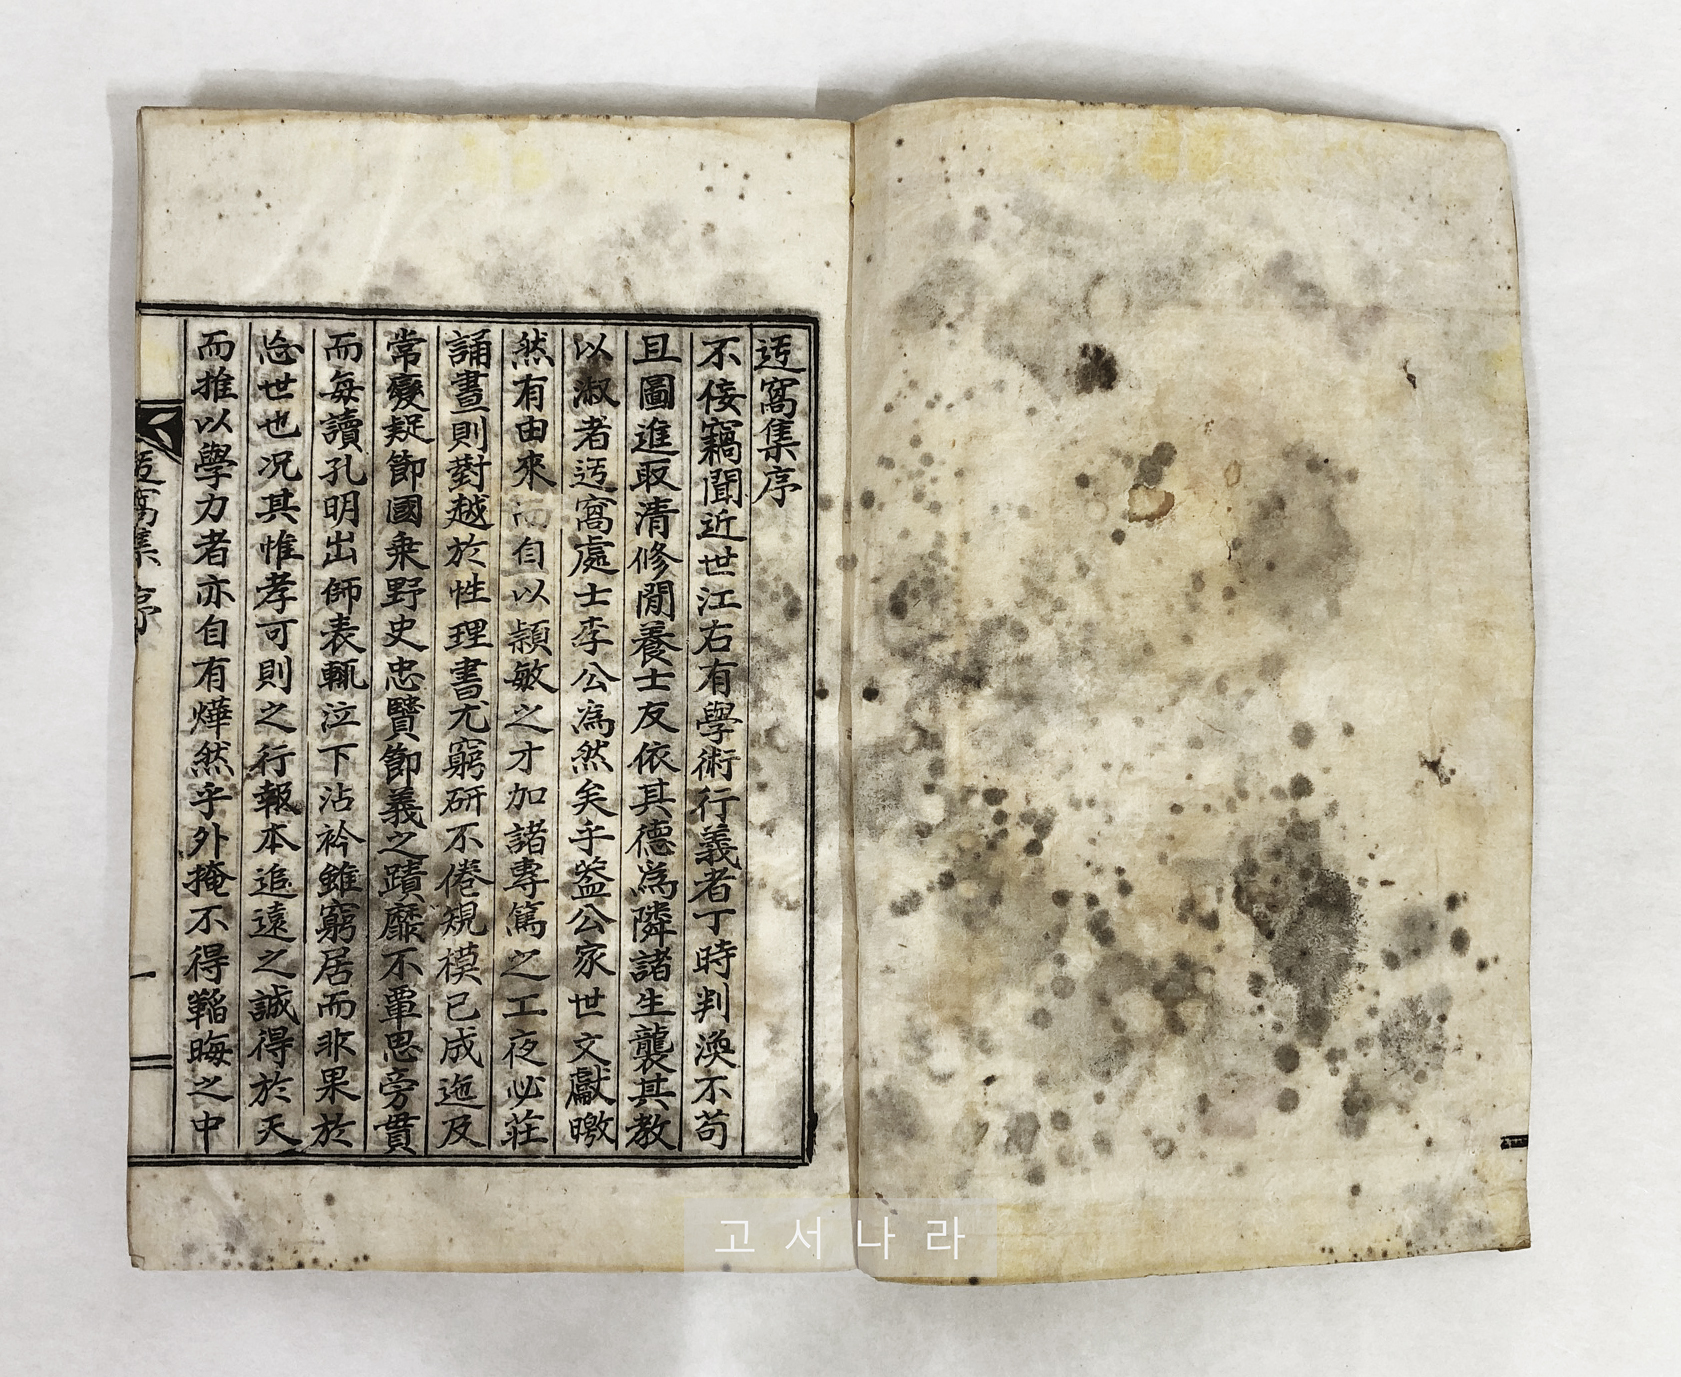 迃窩集序
不佞竊聞近世江右有學術行義者丁時判渙不苟
且圖進取淸修閒養士友依其德為隣諸生襲其教
以淑者迃窩處士李公為然矣乎盖公家世文獻曒
然有由來而自以穎敏之才加諸專篤之工夜必莊
誦晝則對越於性理書尤窮硏不倦規模已成迤及
常變疑節國乘野史忠賢節義之蹟靡不覃思旁貫
而每讀孔明出師表輒泣下沾衿雖窮居而非果於
忘世也况其惟孝可則之行報本追遠之誠得於天
而推以學力者亦自有燁然乎外掩不得韜晦之中
迃窩集 序
一
고서나라